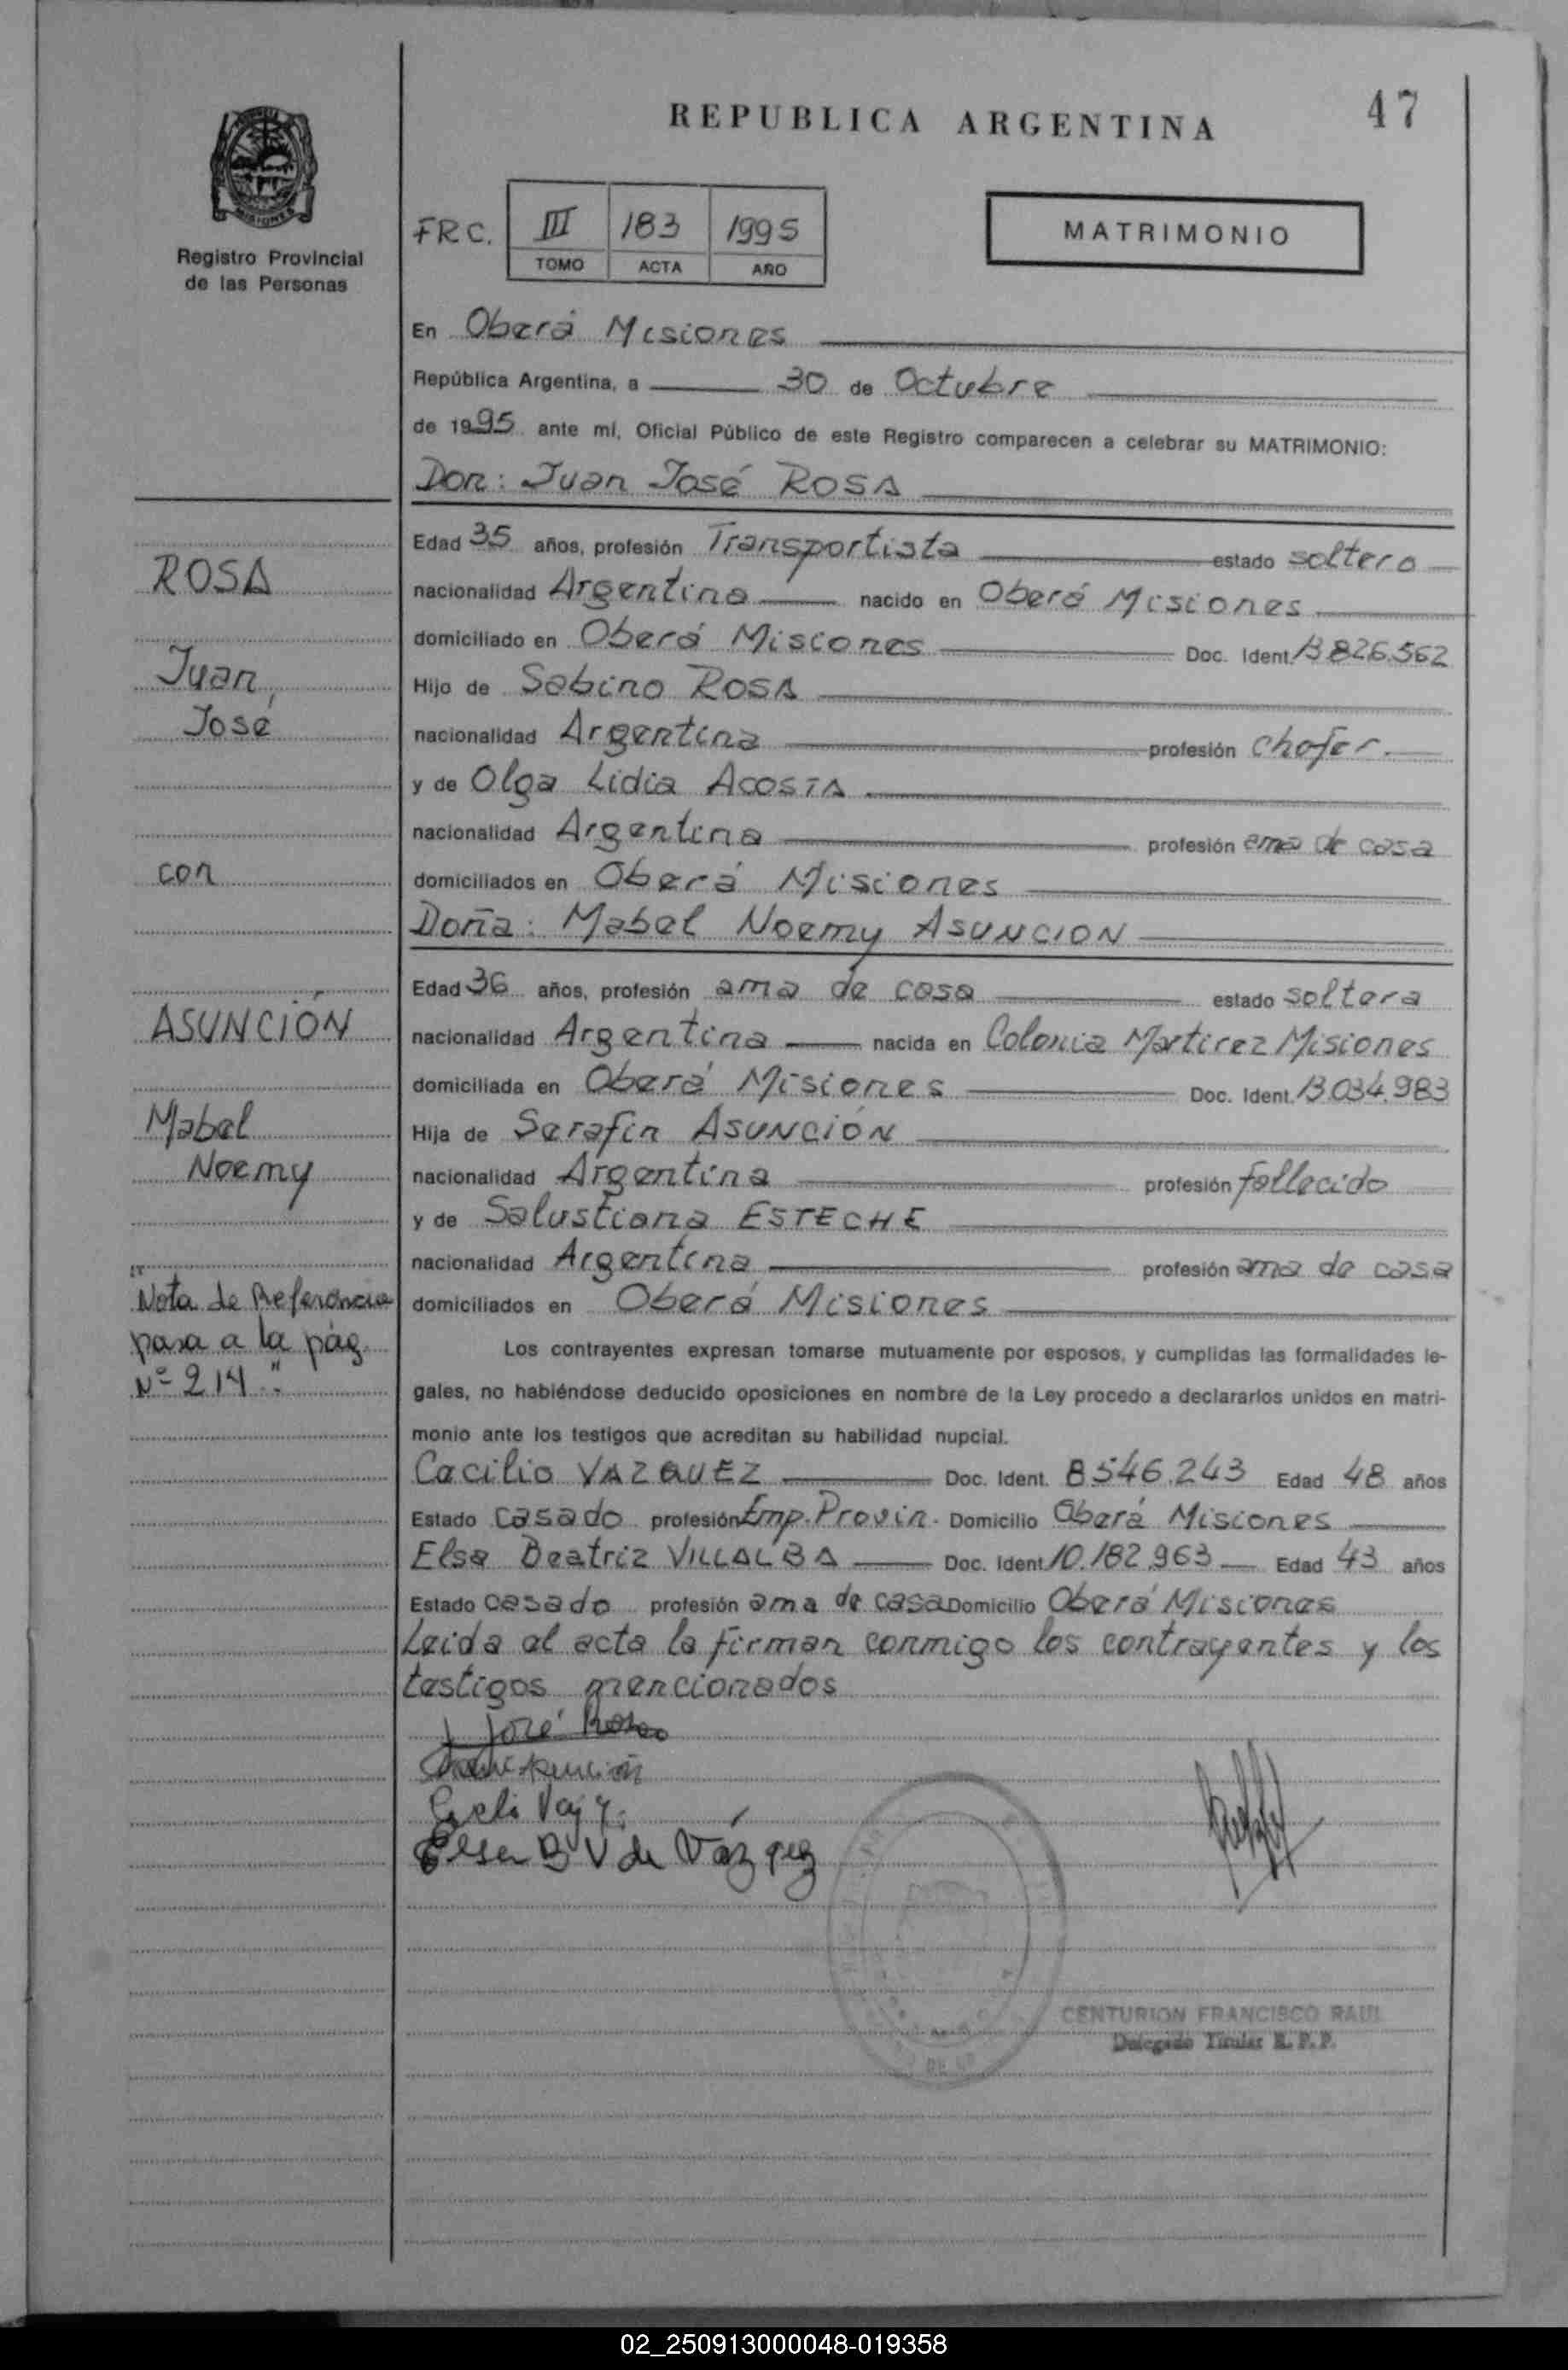 REPUBLICA ARGENTINA
47
Registro Provincial
de las Personas
F.R.C.
III 183 1995
TOMO ACTA AÑO
MATRIMONIO
En Oberá Misiones
República Argentina, a 30 de Octubre
de 1995 ante mí, Oficial Público de este Registro comparecen a celebrar su MATRIMONIO:
Don: Juan José ROSA
Edad 35 años, profesión Transportista estado soltero
nacionalidad Argentina nacido en Oberá Misiones
domiciliado en Oberá Misiones Doc. Ident. 13.826.562
Hijo de Sabino ROSA
nacionalidad Argentina profesión chofer.
y de Olga Lidia ACOSTA
nacionalidad Argentina profesión ama de casa
domiciliados en Oberá Misiones
Doña: Mabel Noemy ASUNCION
Edad 36 años, profesión ama de casa estado soltera
nacionalidad Argentina nacida en Colonia Martirez Misiones
domiciliada en Oberá Misiones Doc. Ident. 13.034.983
Hija de Serafin ASUNCIÓN
nacionalidad Argentina profesión fallecido
y de Salustiana ESTECHE
nacionalidad Argentina profesión ama de casa
domiciliados en Oberá Misiones
Los contrayentes expresan tomarse mutuamente por esposos, y cumplidas las formalidades le-
gales, no habiéndose deducido oposiciones en nombre de la Ley procedo a declararlos unidos en matri-
monio ante los testigos que acreditan su habilidad nupcial.
Cecilio VAZQUEZ Doc. Ident. 8.546.243 Edad 48 años
Estado casado profesión Emp. Provin. Domicilio Oberá Misiones
Elsa Beatriz VILLALBA Doc. Ident. 10.182.963 Edad 43 años
Estado casado profesión ama de casa Domicilio Oberá Misiones
Leida el acta la firman conmigo los contrayentes y los
testigos mencionados
J José Rosa
Asunción
Elsa B V de Vázquez
CENTURION FRANCISCO RAUL
Delegado Titular R. P. P.
ROSA
Juan
José
con
ASUNCIÓN
Mabel
Noemy
"Nota de Referencia
pasa a la pág
Nº 214"
02_250913000048-019358